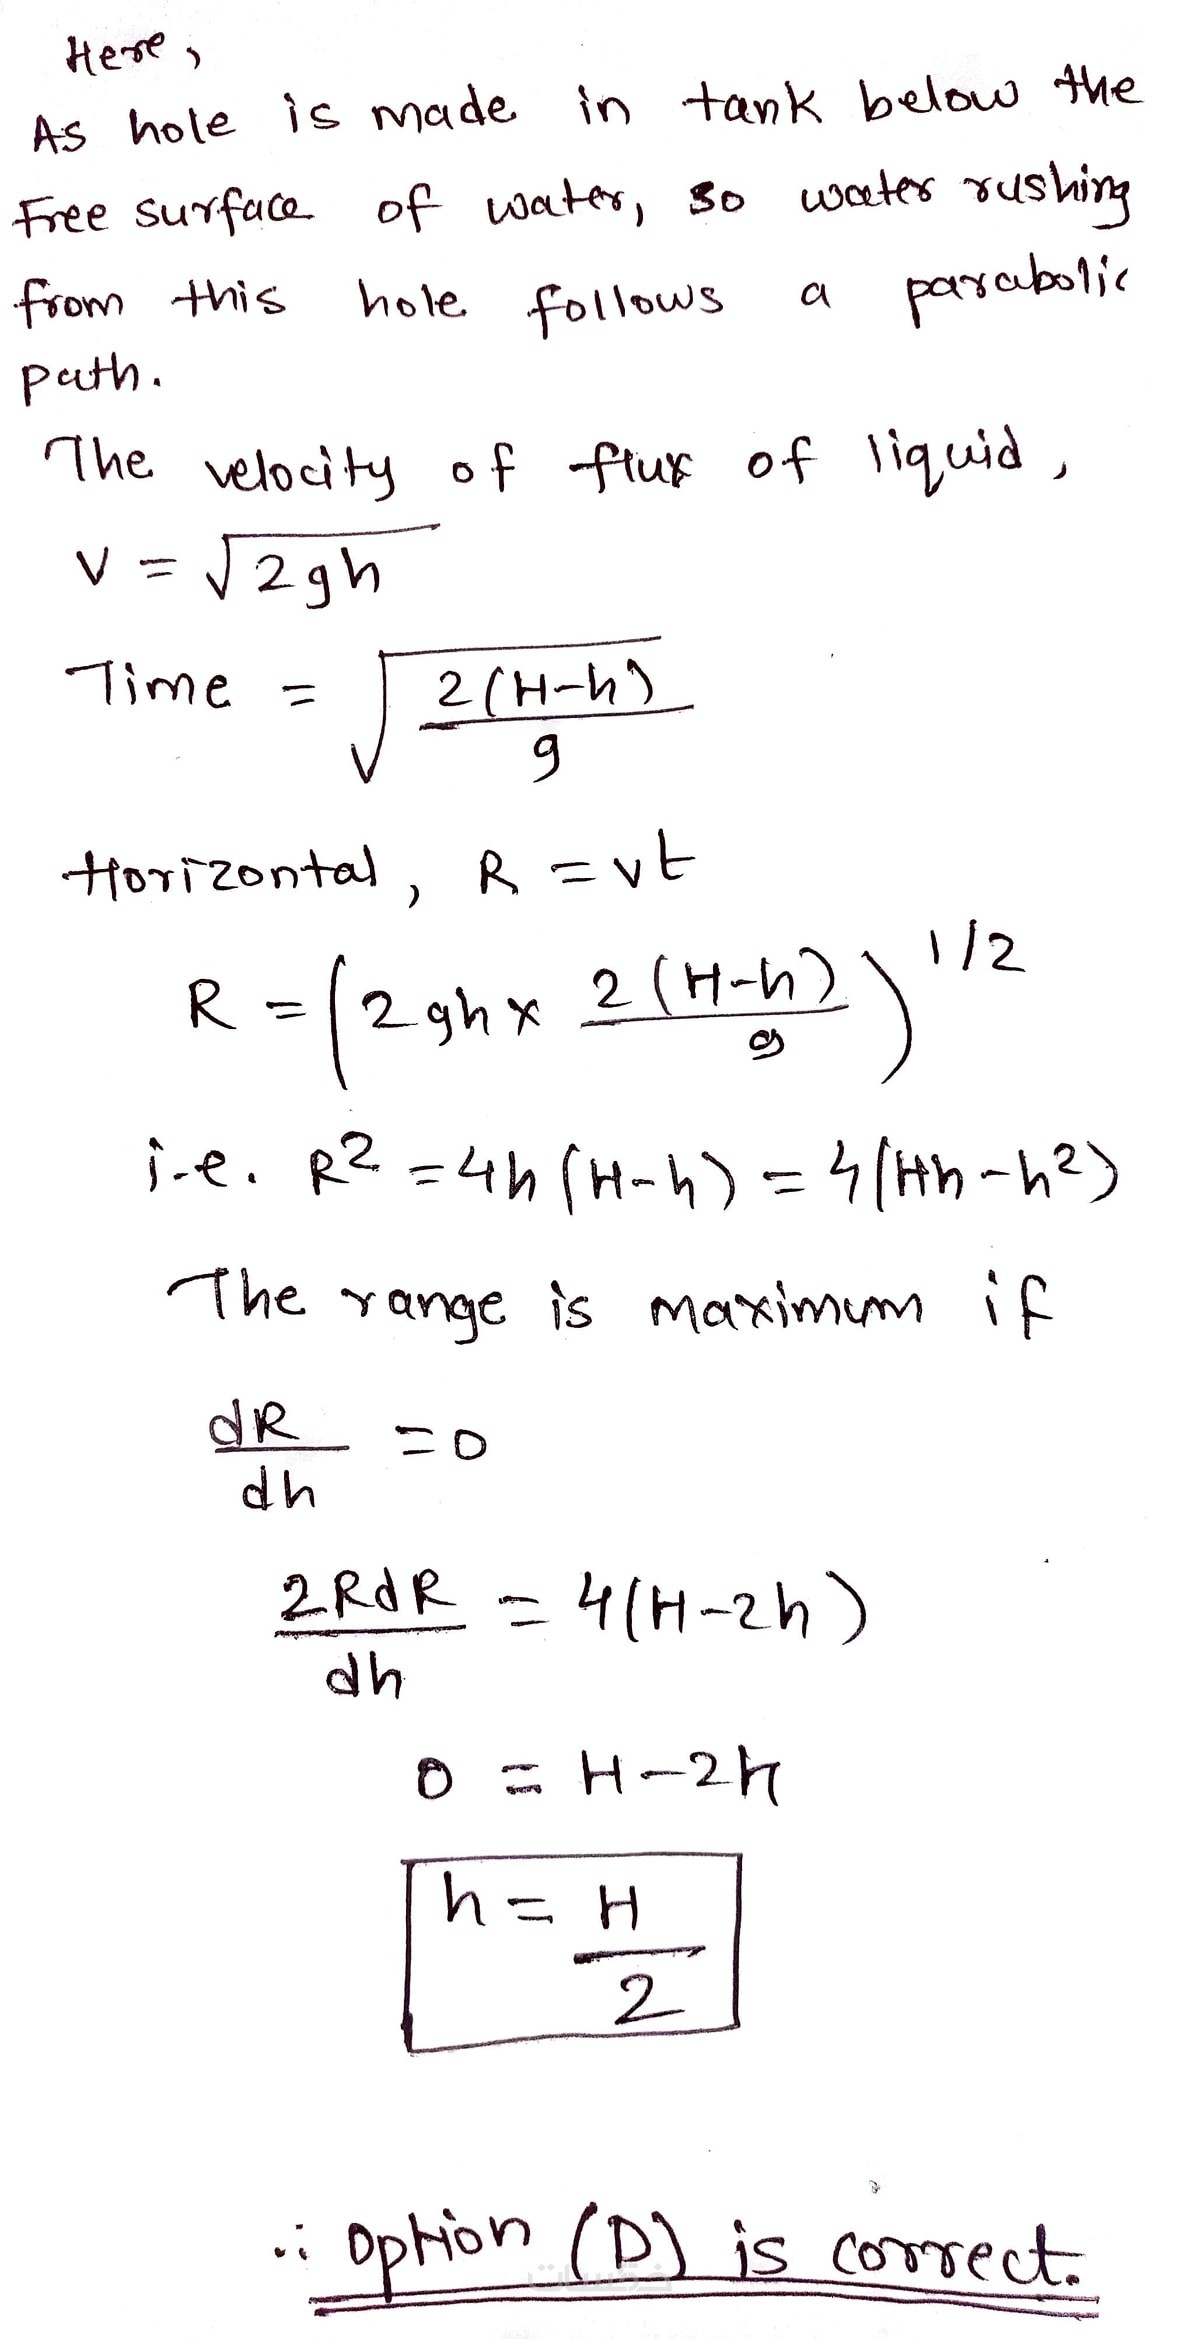 Here,
As hole is made in tank below the
Free surface of water, so water rushing
from this hole follows a parabolic
path.
The velocity of flux of liquid,
V = √2gh
Time = √2(H-h)/g
Horizontal, R = vt
R = (2gh x 2(H-h)/g)^1/2
i-e. R² = 4h(H-h) = 4(Hh-h²)
The range is maximum if
dR/dh = 0
2RdR/dh = 4(H-2h)
0 = H-2h
h = H/2
∴ Option (D) is correct.